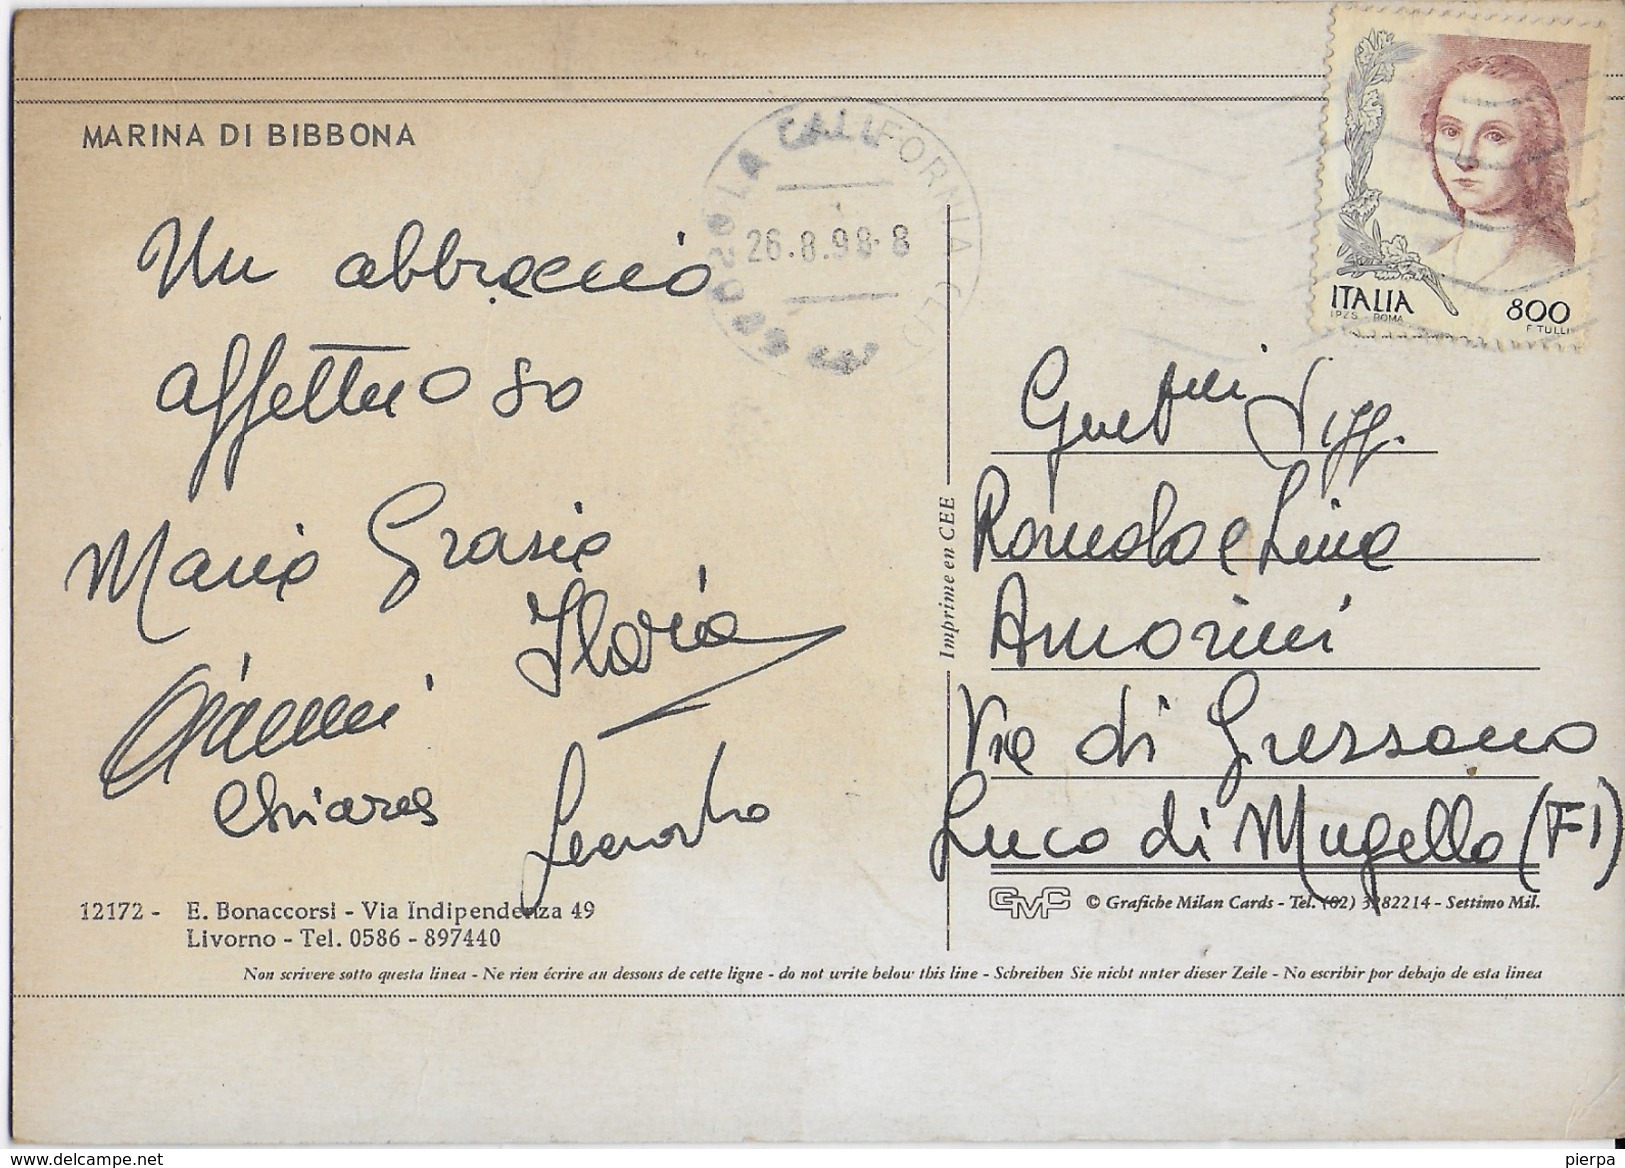 MARINA DI BIBBONA
LA CALIFORNIA (LI)
26.8.98-8
57020
ITALIA
800
I.P.Z.S. ROMA
F. TULLI
Un abbraccio
affettuoso
Maria Grazia
Ilaria
Gianni
Chiara
Leonardo
Gent.mi Sigg.
Romolo e Lina
Amorini
Via di Grezzano
Luco di Mugello (FI)
Imprime en CEE
12172 - E. Bonaccorsi - Via Indipendenza 49
Livorno - Tel. 0586 - 897440
GMC © Grafiche Milan Cards - Tel. (02) 3282214 - Settimo Mil.
Non scrivere sotto questa linea - Ne rien écrire au dessous de cette ligne - do not write below this line - Schreiben Sie nicht unter dieser Zeile - No escribir por debajo de esta linea
www.delcampe.net
pierpa